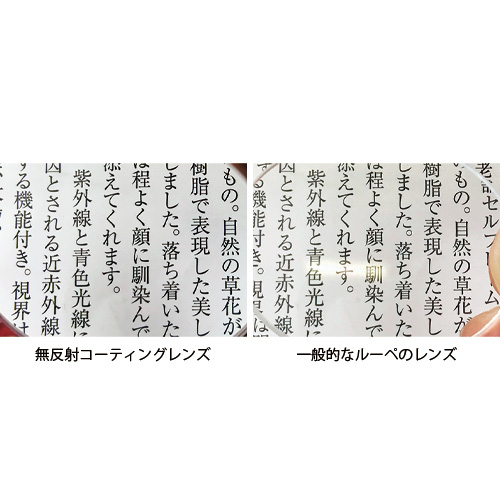 いもの。自然の草花が
樹脂で表現した美し
しました。落ち着いた
は程よく顔に馴染んで
添えてくれます。
紫外線と青色光線に
因とされる近赤外線
する機能付き。視界は
無反射コーティングレンズ
老試セルフレーム
いもの。自然の草花が
樹脂で表現した美し
しました。落ち着いた
は程よく顔に馴染んで
添えてくれます。
紫外線と青色光線に
因とされる近赤外線
る機能付き。視界は明
一般的なルーペのレンズ